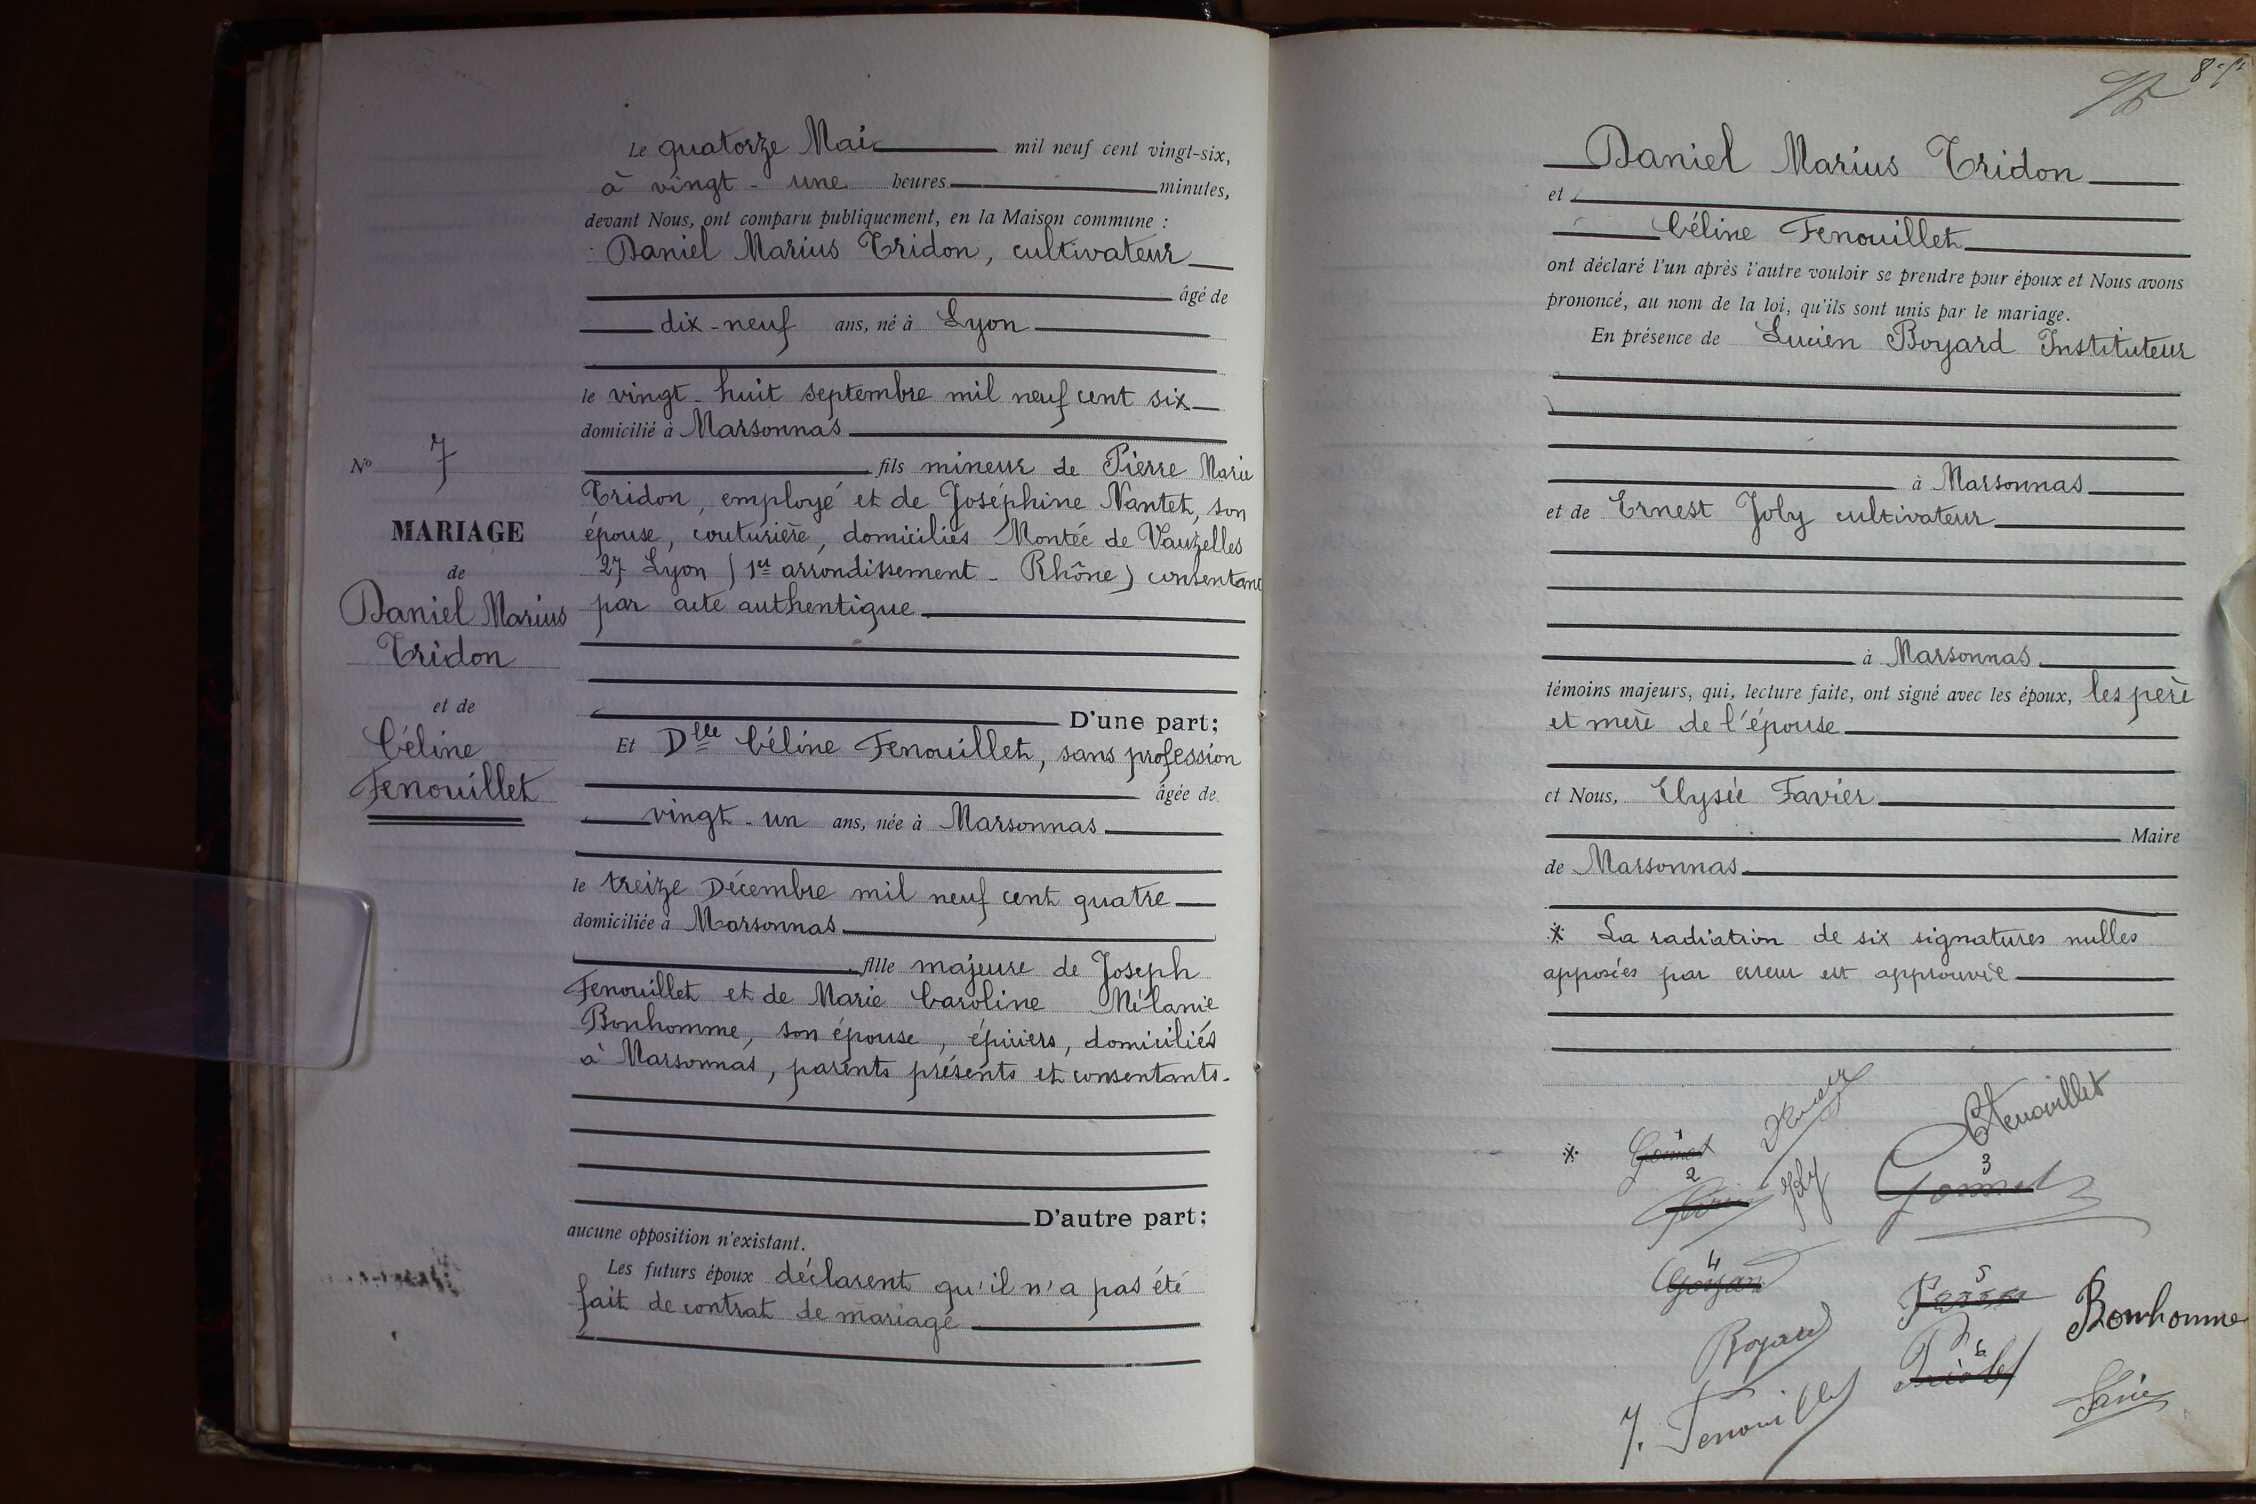 Le quatorze Mai mil neuf cent vingt-six,
à vingt-une heures minutes,
devant Nous, ont comparu publiquement, en la Maison commune :
Daniel Marius Tridon, cultivateur
âgé de
dix-neuf ans, né à Lyon
le vingt-huit septembre mil neuf cent six
domicilié à Marsonnas
fils mineur de Pierre Marie
Tridon, employé et de Joséphine Nantet, son
épouse, couturière, domiciliés Montée de Vauzelles
27 Lyon (1er arrondissement - Rhône) consentant
par acte authentique
D'une part;
Et Dlle Céline Fenouillet, sans profession
âgée de
vingt-un ans, née à Marsonnas
le treize Décembre mil neuf cent quatre
domiciliée à Marsonnas
fille majeure de Joseph
Fenouillet et de Marie Caroline Mélanie
Bonhomme, son épouse, épiciers, domiciliés
à Marsonnas, parents présents et consentants.
D'autre part;
aucune opposition n'existant.
Les futurs époux déclarent qu'il n'a pas été
fait de contrat de mariage
No 7
MARIAGE
de
Daniel Marius
Tridon
et de
Céline
Fenouillet
8
Daniel Marius Tridon
et
Céline Fenouillet
ont déclaré l'un après l'autre vouloir se prendre pour époux et Nous avons
prononcé, au nom de la loi, qu'ils sont unis par le mariage.
En présence de Lucien Boyard Instituteur
à Marsonnas
et de Ernest Joly cultivateur
à Marsonnas
témoins majeurs, qui, lecture faite, ont signé avec les époux, les père
et mère de l'épouse
et Nous, Elysée Favier
Maire
de Marsonnas
* La radiation de six signatures nulles
apposées par erreur est approuvée
CFenouillet
* 1
2
Joly
3
Gonnet
4
5
Bonhomme
Boyard
6
J. Fenouillet
Favier